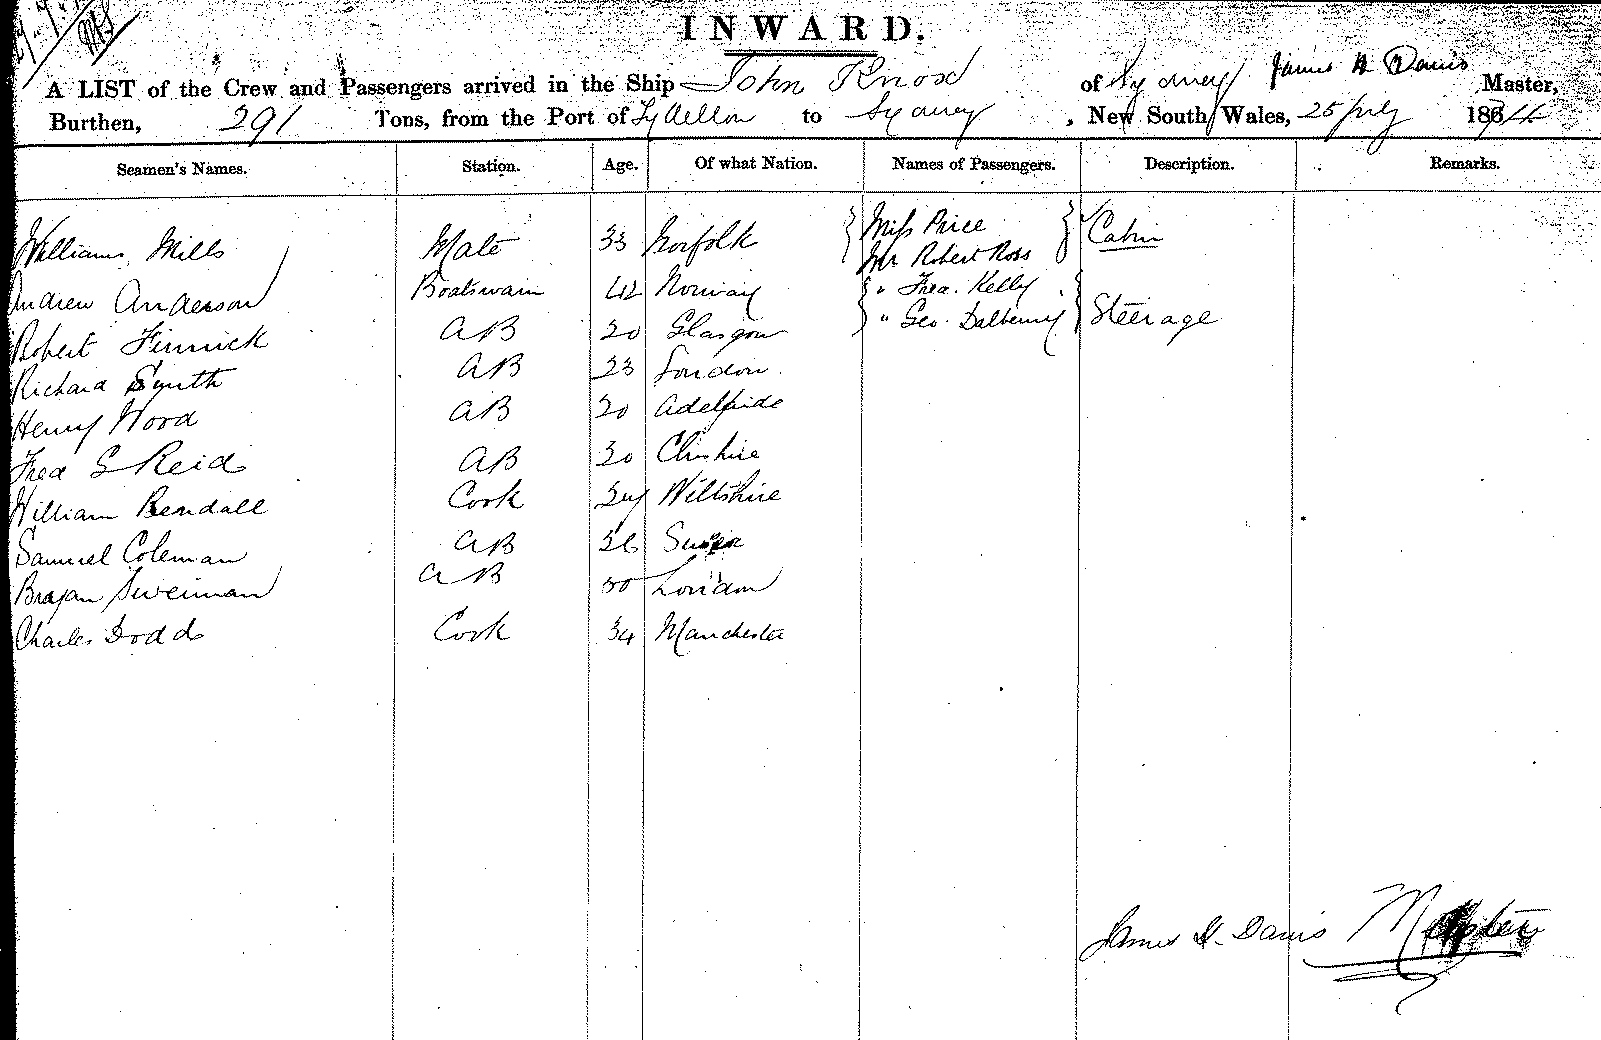 INWARD.
A LIST of the Crew and Passengers arrived in the Ship John Knox of Sydney James H Davis Master,
Burthen, 291 Tons, from the Port of Lyttelton to Sydney, New South Wales, 25 July 1874
Seamen's Names. Station. Age. Of what Nation. Names of Passengers. Description. Remarks.
William Mills Mate 33 Norfolk Miss Price Cabin
Mr Robert Ross
Andrew Anderson Boatswain 42 Norway " Fred. Kelly Steerage
Robert Finnick AB 20 Glasgow " Geo. Dalberry
Richard Smith AB 23 London
Henry Wood AB 20 Adelaide
Fred G Reid AB 20 Cheshire
William Bendall Cook 24 Wiltshire
Samuel Coleman AB 36 Sussex
Bryan Sweiman AB 30 London
Charles Dodds Cook 34 Manchester
James H. Davis Master